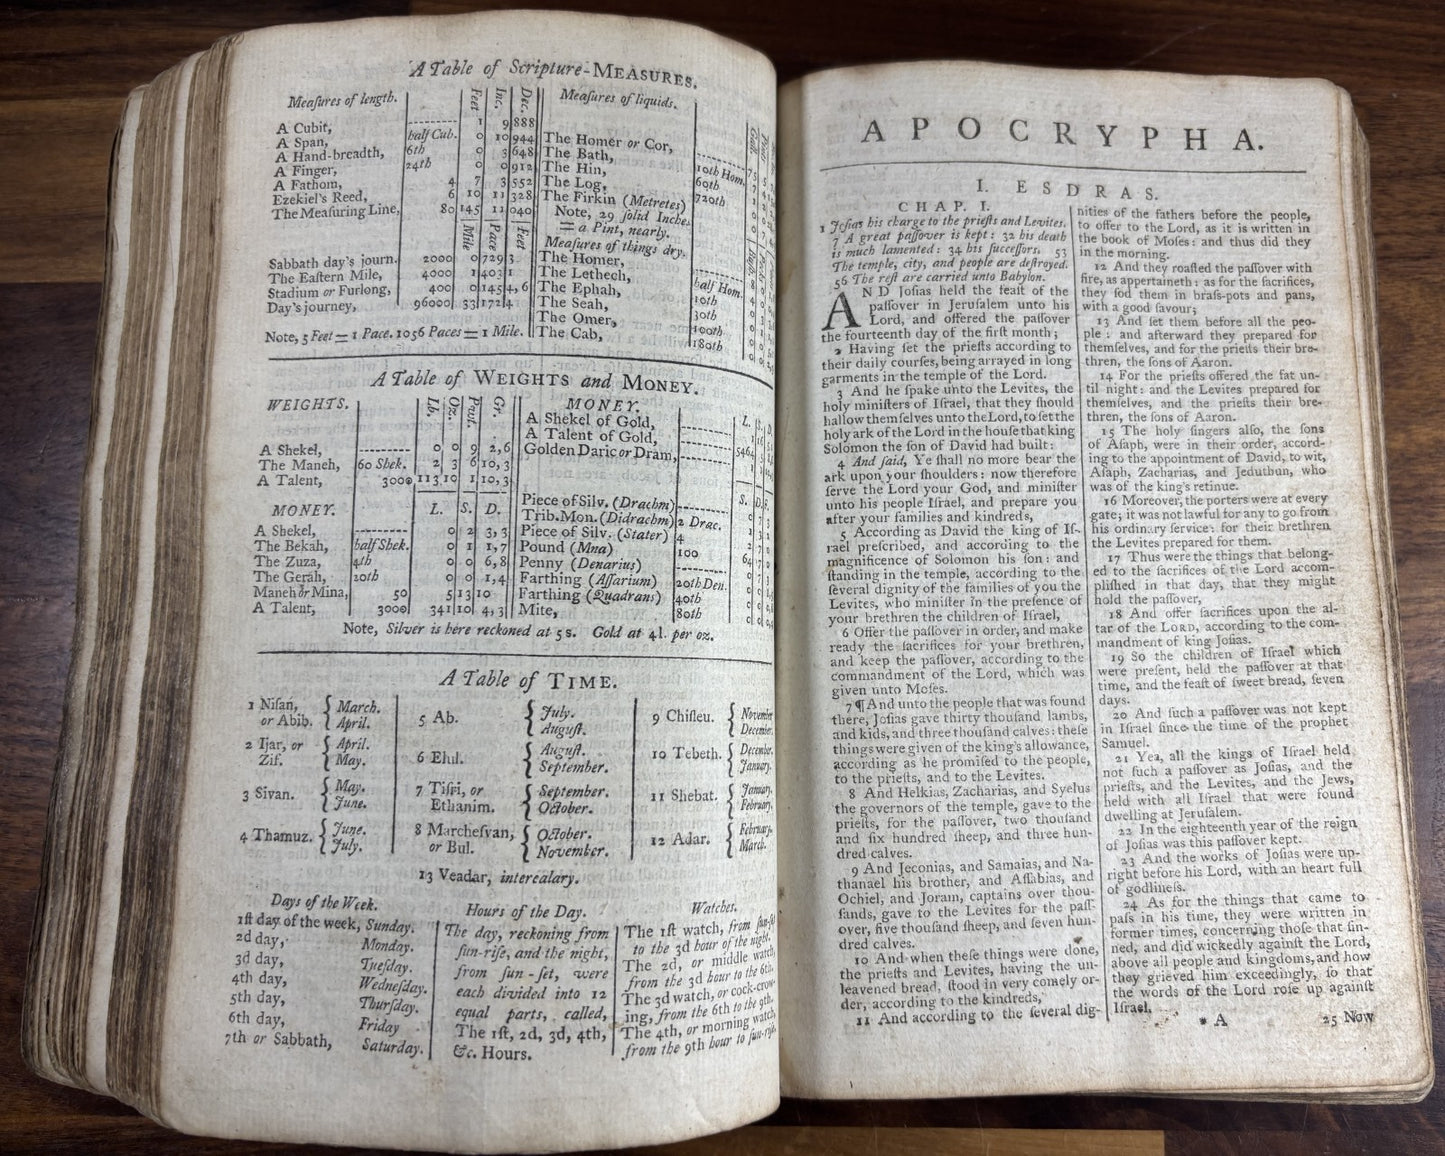 A Table of Scripture-MEASURES.
Meaſures of length.
Feet
Inc.
Dec.
A Cubit, 1 9 888
A Span, half Cub. 0 10 944
A Hand-breadth, 6th 0 3 648
A Finger, 24th 0 0 912
A Fathom, 4 7 3 552
Ezekiel's Reed, 6 10 11 328
The Meaſuring Line, 80 145 11 040
Mile
Pace
Feet
Sabbath day's journ. 2000 0 729 3
The Eaſtern Mile, 4000 1 403 1
Stadium or Furlong, 400 0 145 4,6
Day's journey, 96000 33 172 4
Note, 5 Feet = 1 Pace. 1056 Paces = 1 Mile.
Meaſures of liquids.
The Homer or Cor,
The Bath, 10th Hom.
The Hin, 60th
The Log, 720th
The Firkin (Metretes)
Note, 29 ſolid Inches
= a Pint, nearly.
Meaſures of things dry.
The Homer,
The Lethech, half Hom.
The Ephah, 10th
The Seah, 30th
The Omer, 100th
The Cab, 180th
A Table of WEIGHTS and MONEY.
WEIGHTS.
Lb.
Oz.
Pwt.
Gr.
A Shekel, 0 0 9 2,6
The Maneh, 60 Shek. 2 3 6 10,3
A Talent, 3000 113 10 1 10,3
MONEY. L. S. D.
A Shekel, 0 2 3,3
The Bekah, half Shek. 0 1 1,7
The Zuza, 4th 0 0 6,8
The Gerah, 20th 0 0 1,4
Maneh or Mina, 50 5 13 10
A Talent, 3000 341 10 4,3
MONEY. L.
A Shekel of Gold,
A Talent of Gold, 5464
Golden Daric or Dram,
S. D.
Piece of Silv. (Drachm)
Trib. Mon. (Didrachm) 2 Drac.
Piece of Silv. (Stater) 4
Pound (Mna) 100 64
Penny (Denarius)
Farthing (Aſſarium) 20th Den.
Farthing (Quadrans) 40th
Mite, 80th
Note, Silver is here reckoned at 5 s. Gold at 4 l. per oz.
A Table of TIME.
1 Niſan, or Abib. { March. April.
2 Ijar, or Zif. { April. May.
3 Sivan. { May. June.
4 Thamuz. { June. July.
5 Ab. { July. Auguſt.
6 Elul. { Auguſt. September.
7 Tiſri, or Ethanim. { September. October.
8 Marcheſvan, or Bul. { October. November.
9 Chiſleu. { November December.
10 Tebeth. { December. January.
11 Shebat. { January. February.
12 Adar. { February. March.
13 Veadar, intercalary.
Days of the Week.
1ſt day of the week, Sunday.
2d day, Monday.
3d day, Tueſday.
4th day, Wedneſday.
5th day, Thurſday.
6th day, Friday
7th or Sabbath, Saturday.
Hours of the Day.
The day, reckoning from
ſun-riſe, and the night,
from ſun-ſet, were
each divided into 12
equal parts, called,
The 1ſt, 2d, 3d, 4th,
&c. Hours.
Watches.
The 1ſt watch, from ſun-ſet
to the 3d hour of the night.
The 2d, or middle watch,
from the 3d hour to the 6th.
The 3d watch, or cock-crow-
ing, from the 6th to the 9th.
The 4th, or morning watch,
from the 9th hour to ſun-riſe.
APOCRYPHA.
I. ESDRAS.
CHAP. I.
1 Joſias his charge to the prieſts and Levites.
7 A great paſſover is kept: 32 his death
is much lamented: 34 his ſucceſſors. 53
The temple, city, and people are deſtroyed.
56 The reſt are carried unto Babylon.
AND Joſias held the feaſt of the
paſſover in Jeruſalem unto his
Lord, and offered the paſſover
the fourteenth day of the firſt month;
2 Having ſet the prieſts according to
their daily courſes, being arrayed in long
garments in the temple of the Lord.
3 And he ſpake unto the Levites, the
holy miniſters of Iſrael, that they ſhould
hallow themſelves unto the Lord, to ſet the
holy ark of the Lord in the houſe that king
Solomon the ſon of David had built:
4 And ſaid, Ye ſhall no more bear the
ark upon your ſhoulders: now therefore
ſerve the Lord your God, and miniſter
unto his people Iſrael, and prepare you
after your families and kindreds,
5 According as David the king of Iſ-
rael preſcribed, and according to the
magnificence of Solomon his ſon: and
ſtanding in the temple, according to the
ſeveral dignity of the families of you the
Levites, who miniſter in the preſence of
your brethren the children of Iſrael,
6 Offer the paſſover in order, and make
ready the ſacrifices for your brethren,
and keep the paſſover, according to the
commandment of the Lord, which was
given unto Moſes.
7 ¶ And unto the people that was found
there, Joſias gave thirty thouſand lambs,
and kids, and three thouſand calves: theſe
things were given of the king's allowance,
according as he promiſed to the people,
to the prieſts, and to the Levites.
8 And Helkias, Zacharias, and Syelus
the governors of the temple, gave to the
prieſts, for the paſſover, two thouſand
and ſix hundred ſheep, and three hun-
dred calves.
9 And Jeconias, and Samaias, and Na-
thanael his brother, and Aſſabias, and
Ochiel, and Joram, captains over thou-
ſands, gave to the Levites for the paſſ-
over, five thouſand ſheep, and ſeven hun-
dred calves.
10 And when theſe things were done,
the prieſts and Levites, having the un-
leavened bread, ſtood in very comely or-
der, according to the kindreds,
11 And according to the ſeveral dig-
nities of the fathers before the people,
to offer to the Lord, as it is written in
the book of Moſes: and thus did they
in the morning.
12 And they roaſted the paſſover with
fire, as appertaineth: as for the ſacrifices,
they ſod them in braſs-pots and pans,
with a good ſavour;
13 And ſet them before all the peo-
ple: and afterward they prepared for
themſelves, and for the prieſts their bre-
thren, the ſons of Aaron.
14 For the prieſts offered the fat un-
til night: and the Levites prepared for
themſelves, and the prieſts their bre-
thren, the ſons of Aaron.
15 The holy ſingers alſo, the ſons
of Aſaph, were in their order, accord-
ing to the appointment of David, to wit,
Aſaph, Zacharias, and Jeduthun, who
was of the king's retinue.
16 Moreover, the porters were at every
gate; it was not lawful for any to go from
his ordinary ſervice: for their brethren
the Levites prepared for them.
17 Thus were the things that belong-
ed to the ſacrifices of the Lord accom-
pliſhed in that day, that they might
hold the paſſover,
18 And offer ſacrifices upon the al-
tar of the LORD, according to the com-
mandment of king Joſias.
19 So the children of Iſrael which
were preſent, held the paſſover at that
time, and the feaſt of ſweet bread, ſeven
days.
20 And ſuch a paſſover was not kept
in Iſrael ſince the time of the prophet
Samuel.
21 Yea, all the kings of Iſrael held
not ſuch a paſſover as Joſias, and the
prieſts, and the Levites, and the Jews,
held with all Iſrael that were found
dwelling at Jeruſalem.
22 In the eighteenth year of the reign
of Joſias was this paſſover kept.
23 And the works of Joſias were up-
right before his Lord, with an heart full
of godlineſs.
24 As for the things that came to
paſs in his time, they were written in
former times, concerning thoſe that ſin-
ned, and did wickedly againſt the Lord,
above all people and kingdoms, and how
they grieved him exceedingly, ſo that
the words of the Lord roſe up againſt
Iſrael.
* A
25 Now